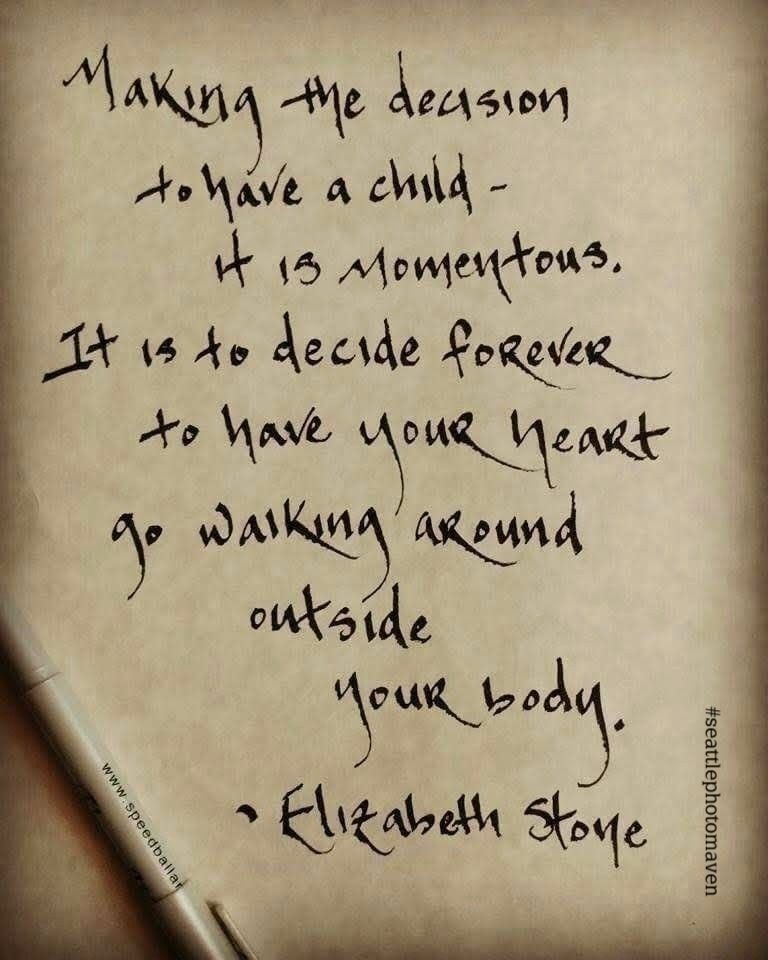 Making the decision
to have a child -
it is momentous.
It is to decide forever
to have your heart
go walking around
outside
your body.
• Elizabeth Stone
#seattlephotomaven
www.speedballar